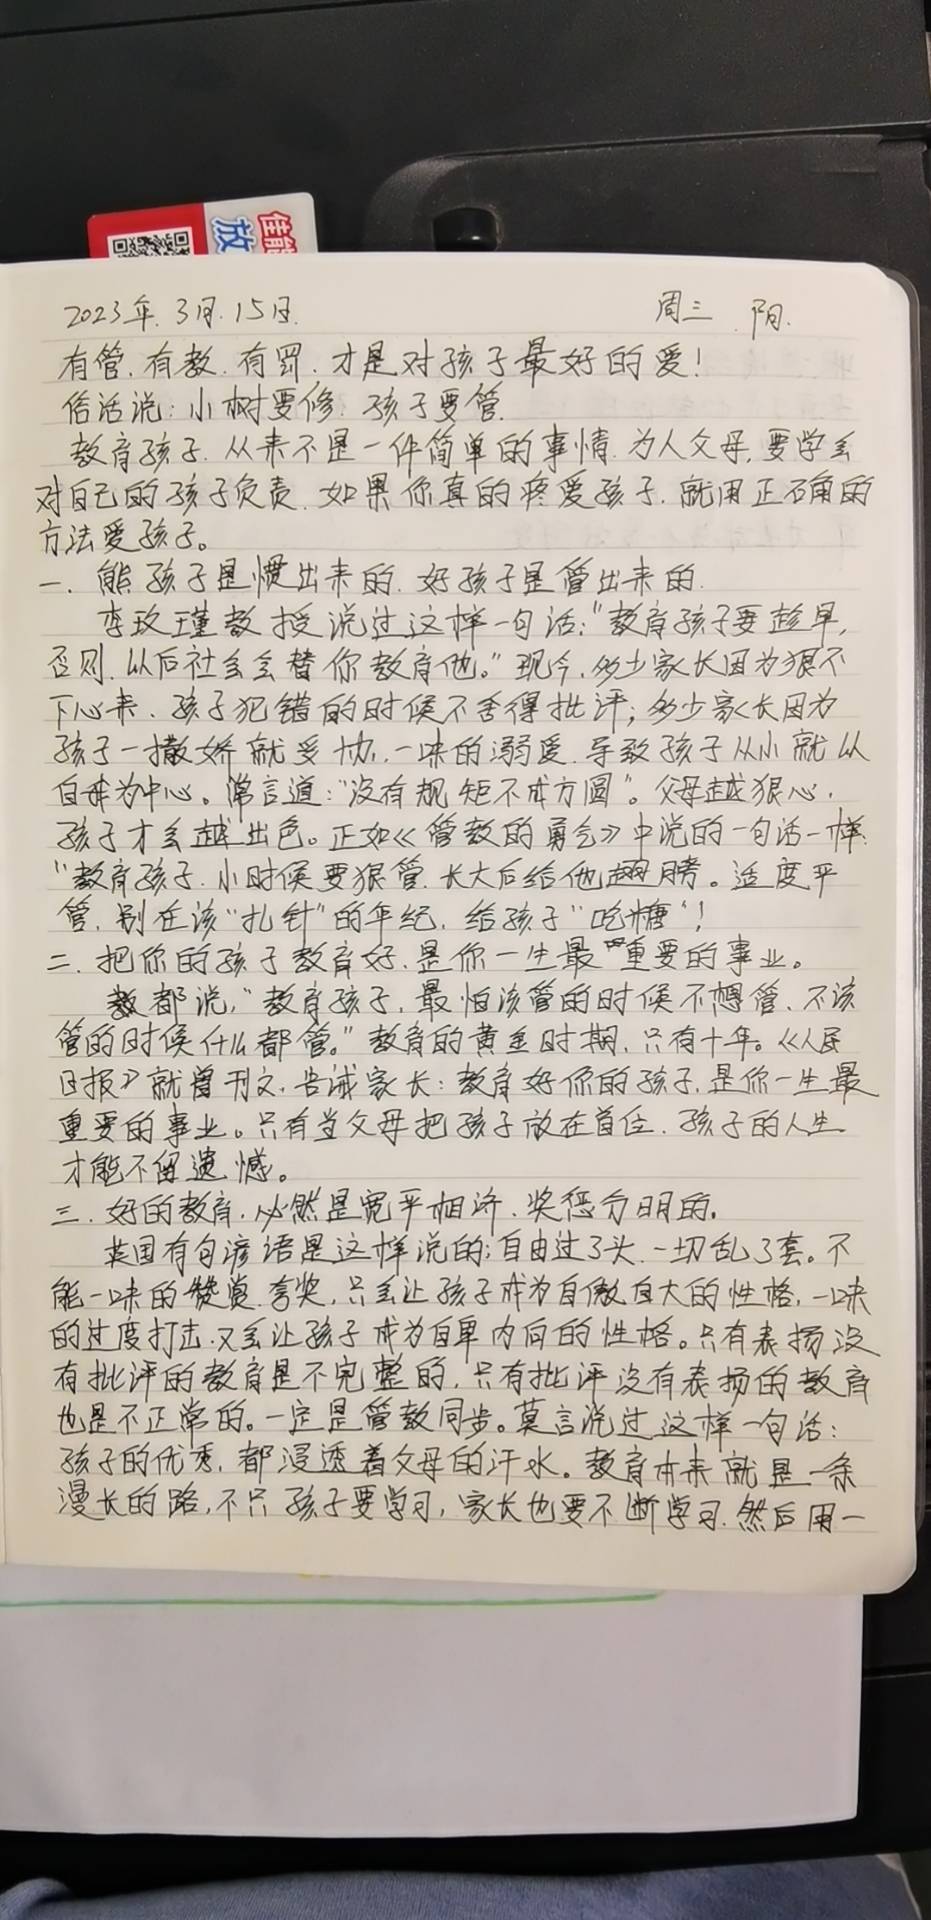 佳能
放
2023年.3月.15日. 周三 阴.
有管.有教.有罚.才是对孩子最好的爱!
俗话说:小树要修.孩子要管.
教育孩子.从来不是一件简单的事情.为人父母,要学会
对自己的孩子负责.如果你真的疼爱孩子.就用正确的
方法爱孩子。
一.熊孩子是惯出来的.好孩子是管出来的.
李玫瑾教授说过这样一句话:"教育孩子要趁早,
否则.以后社会会替你教育他。"现今.多少家长因为狠不
下心来.孩子犯错的时候不舍得批评;多少家长因为
孩子一撒娇就妥协.一味的溺爱.导致孩子从小就以
自我为中心。常言道:"没有规矩不成方圆"。父母越狠心,
孩子才会越出色。正如《管教的勇气》中说的一句话一样:
"教育孩子.小时候要狠管.长大后给他翅膀。适度严
管,别在该"扎针"的年纪,给孩子"吃糖"!
二.把你的孩子教育好.是你一生最重要的事业。
都说,"教育孩子,最怕该管的时候不想管.不该
管的时候什么都管。"教育的黄金时期,只有十年。《人民
日报》就曾刊文.告诫家长:教育好你的孩子.是你一生最
重要的事业。只有当父母把孩子放在首位.孩子的人生
才能不留遗憾。
三.好的教育.必然是宽严相济.奖惩分明的.
英国有句谚语是这样说的:自由过了头.一切乱了套。不
能一味的赞赏.夸奖,只会让孩子成为自傲自大的性格,一味
的过度打击.又会让孩子成为自卑内向的性格。只有表扬没
有批评的教育是不完整的,只有批评没有表扬的教育
也是不正常的。一定是管教同步。莫言说过这样一句话:
孩子的优秀,都浸透着父母的汗水。教育本来就是一条
漫长的路,不只孩子要学习,家长也要不断学习.然后用一